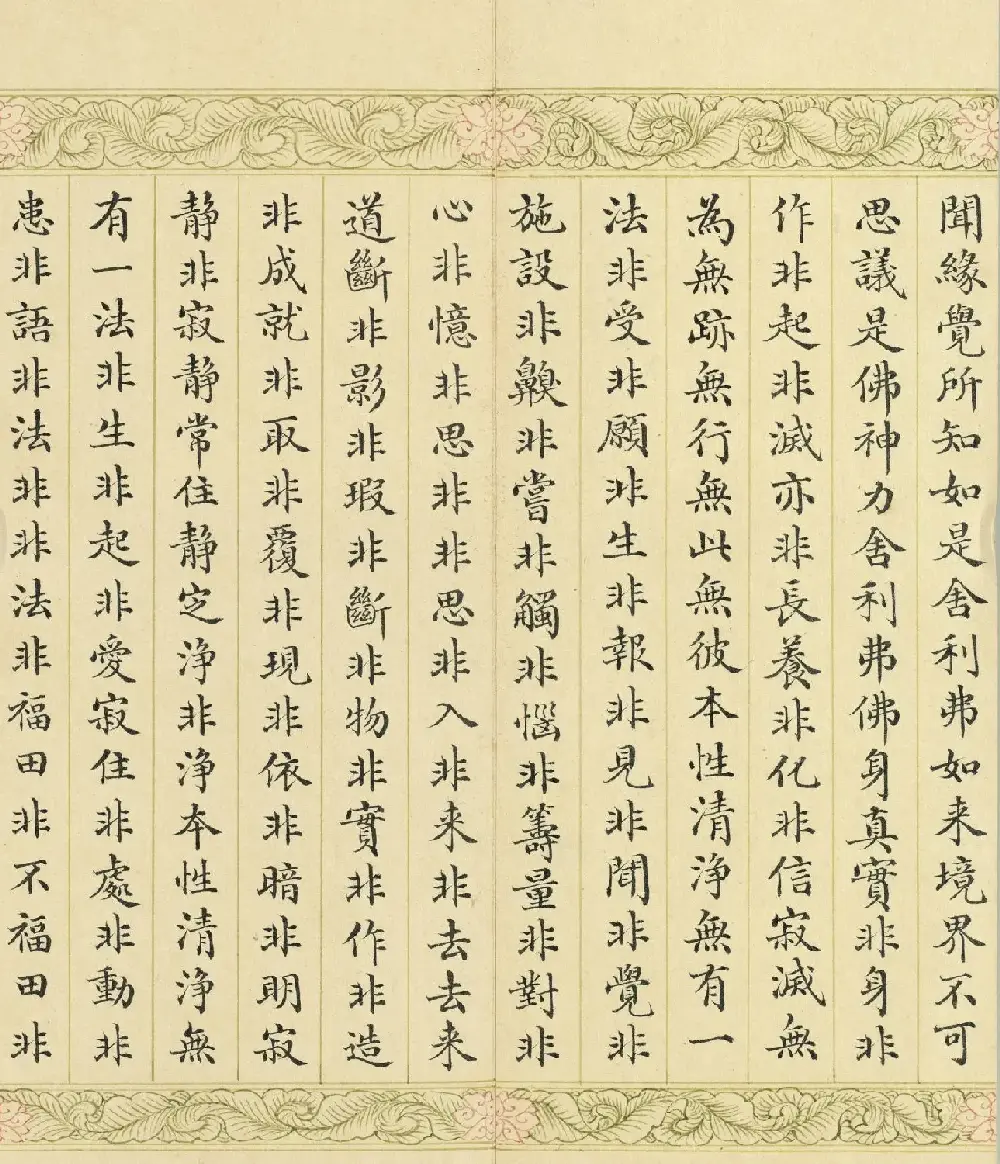 聞緣覺所知如是舍利弗如来境界不可
思議是佛神力舍利弗佛身真實非身非
作非起非滅亦非長養非化非信寂滅無
為無跡無行無此無彼本性清淨無有一
法非受非願非生非報非見非聞非覺非
施設非齅非嘗非觸非惱非籌量非對非
心非憶非思非非思非入非来非去去来
道斷非影非瑕非斷非物非實非作非造
非成就非取非覆非現非依非暗非明寂
静非寂静常住静定淨非淨本性清淨無
有一法非生非起非愛寂住非處非動非
患非語非法非非法非福田非不福田非